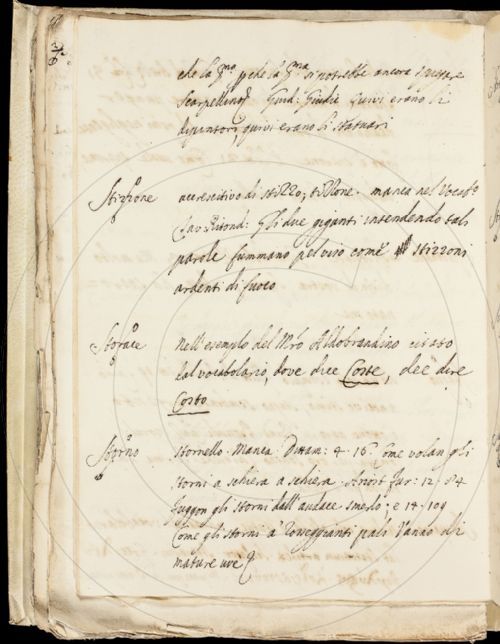 che la p.ma p che la p.ma si potrebbe ancora
Scarpellino. Guid: Giudic quivi erano li
dipintori, quivi erano li statuari
Stizzone accrescitivo di stizzo, tizzone. manca nel Vocab.o
Tav: Ritond: Gli due giganti intendendo tali
parole fummano pel viso come stizzoni
ardenti di fuoco
Storace Nell'esempio del Mro Aldobrandino citato
dal vocabolario, dove dice Corte, dee dire
Corto
Storno Stornello. Manca. Dittam: 4. 16. Come volan gli
storni a schiera a schiera. Ariost. Fur: 12. 84
Fuggon gli storni dall'audace smerlo; e 14. 109
Come gli storni a rosseggianti pali Vanno di
mature uve